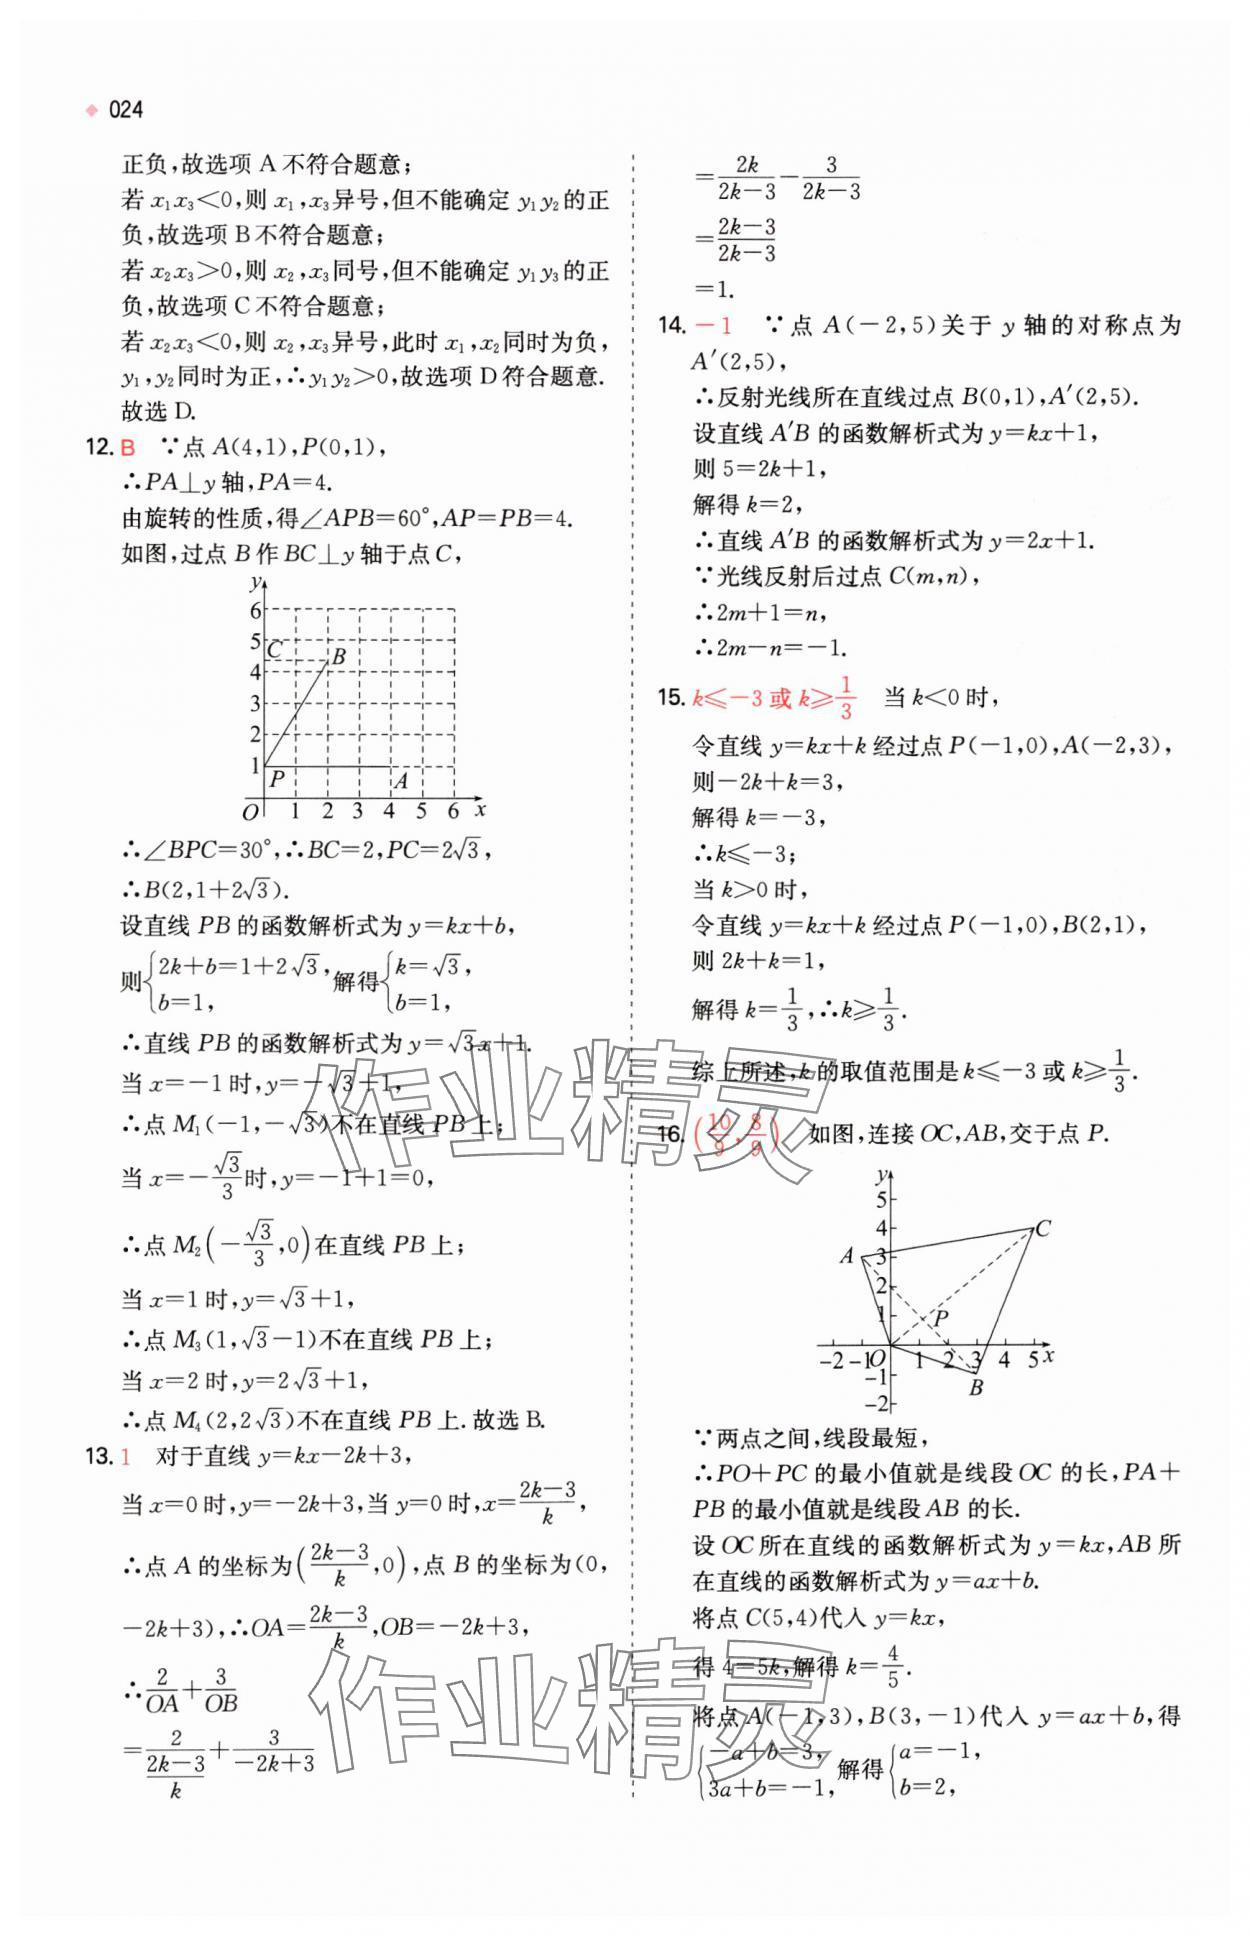 024
正负,故选项 A 不符合题意;
若 x₁x₃<0,则 x₁,x₃异号,但不能确定 y₁y₂的正
负,故选项 B 不符合题意;
若 x₂x₃>0,则 x₂,x₃同号,但不能确定 y₁y₃的正
负,故选项 C 不符合题意;
若 x₂x₃<0,则 x₂,x₃异号,此时 x₁,x₂同时为负,
y₁,y₂同时为正,∴y₁y₂>0,故选项 D 符合题意.
故选 D.
12. B ∵点 A(4,1),P(0,1),
∴PA⊥y 轴,PA=4.
由旋转的性质,得∠APB=60°,AP=PB=4.
如图,过点 B 作 BC⊥y 轴于点 C,
y
6
5
C
B
4
3
2
1
P
A
O 1 2 3 4 5 6 x
∴∠BPC=30°,∴BC=2,PC=2√3,
∴B(2,1+2√3).
设直线 PB 的函数解析式为 y=kx+b,
则{2k+b=1+2√3, b=1, 解得{k=√3, b=1,
∴直线 PB 的函数解析式为 y=√3x+1.
当 x=-1 时,y=-√3+1,
∴点 M₁(-1,-√3)不在直线 PB 上;
当 x=-√3/3 时,y=-1+1=0,
∴点 M₂(-√3/3,0)在直线 PB 上;
当 x=1 时,y=√3+1,
∴点 M₃(1,√3-1)不在直线 PB 上;
当 x=2 时,y=2√3+1,
∴点 M₄(2,2√3)不在直线 PB 上.故选 B.
13. 1 对于直线 y=kx-2k+3,
当 x=0 时,y=-2k+3,当 y=0 时,x=(2k-3)/k,
∴点 A 的坐标为((2k-3)/k,0),点 B 的坐标为(0,
-2k+3),∴OA=(2k-3)/k,OB=-2k+3,
∴2/OA+3/OB
=2/((2k-3)/k)+3/(-2k+3)
=2k/(2k-3)-3/(2k-3)
=(2k-3)/(2k-3)
=1.
14. -1 ∵点 A(-2,5)关于 y 轴的对称点为
A′(2,5),
∴反射光线所在直线过点 B(0,1),A′(2,5).
设直线 A′B 的函数解析式为 y=kx+1,
则 5=2k+1,
解得 k=2,
∴直线 A′B 的函数解析式为 y=2x+1.
∵光线反射后过点 C(m,n),
∴2m+1=n,
∴2m-n=-1.
15. k≤-3 或 k≥1/3 当 k<0 时,
令直线 y=kx+k 经过点 P(-1,0),A(-2,3),
则-2k+k=3,
解得 k=-3,
∴k≤-3;
当 k>0 时,
令直线 y=kx+k 经过点 P(-1,0),B(2,1),
则 2k+k=1,
解得 k=1/3,∴k≥1/3.
综上所述,k 的取值范围是 k≤-3 或 k≥1/3.
16. (10/9,8/9) 如图,连接 OC,AB,交于点 P.
y
5
4
C
A
3
2
1
P
-2 -1 O 1 2 3 4 5 x
-1
B
-2
∵两点之间,线段最短,
∴PO+PC 的最小值就是线段 OC 的长,PA+
PB 的最小值就是线段 AB 的长.
设 OC 所在直线的函数解析式为 y=kx,AB 所
在直线的函数解析式为 y=ax+b.
将点 C(5,4)代入 y=kx,
得 4=5k,解得 k=4/5.
将点 A(-1,3),B(3,-1)代入 y=ax+b,得
{-a+b=3, 3a+b=-1, 解得{a=-1, b=2,
作业精灵
作业精灵